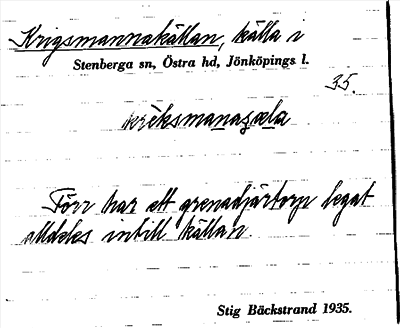 Krigsmannakällan, källa i
Stenberga sn, Östra hd, Jönköpings l.
35.
krèksmanaçæla
Förr har ett grenadjärtorp legat
alldeles intill källan.
Stig Bäckstrand 1935.